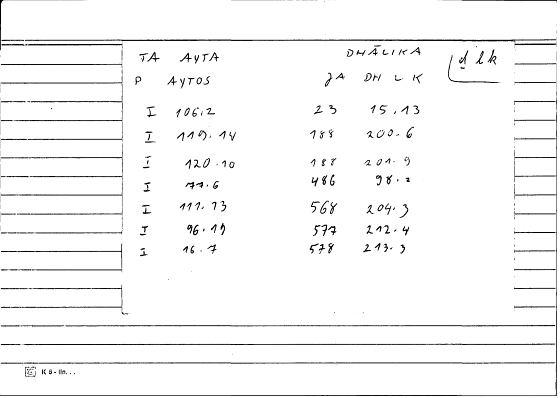 TA AYTA DHĀLIKA ḏ l k
P AYTOS JA DH L K
I 106.2 23 15.13
I 119.14 188 200.6
I 120.10 188 201.9
I 77.6 486 98.2
I 111.13 568 204.3
I 96.19 577 212.4
I 16.7 578 213.3
K 5 -